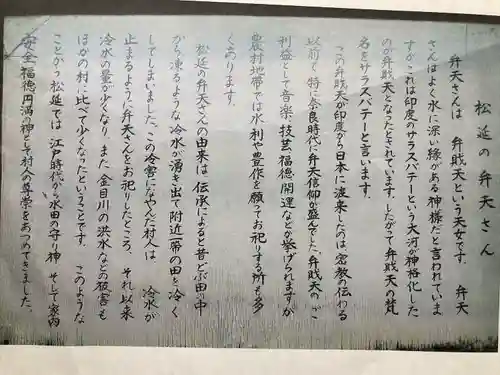 松延の弁天さん
弁天さんは 弁財天という天女です。 弁天
さんはよく水に深い縁がある神様だと言われていま
すが、これは印度のサラスバテーという大河が神格化した
のが弁財天となったとされています。したがって弁財天の梵
名をサラスバテーと言います。
この弁財天が印度から日本に渡来したのは、密教の伝わる
以前で特に奈良時代に弁天信仰が盛んでした。弁財天のご
利益として音楽、技芸、福徳、開運などが挙げられますが
農村地帯では水利や豊作を願ってお祀りする所も多
くあります。
松延の弁天さんの由来は、伝承によると昔どぶ田の中
から凍るような冷水が湧き出て附近一帯の田を冷く
してしまいました。この冷害になやんだ村人は 冷水が
止まるように弁天さんをお祀りしたところ、それ以来
冷水の量が少くなり、また金目川の洪水などの被害も
ほかの村に比べて少くなったということです。 このような
ことから松延では 江戸時代から水田の守り神 そして家内
安全、福徳円満の神として村人の尊崇をあつめてきました。